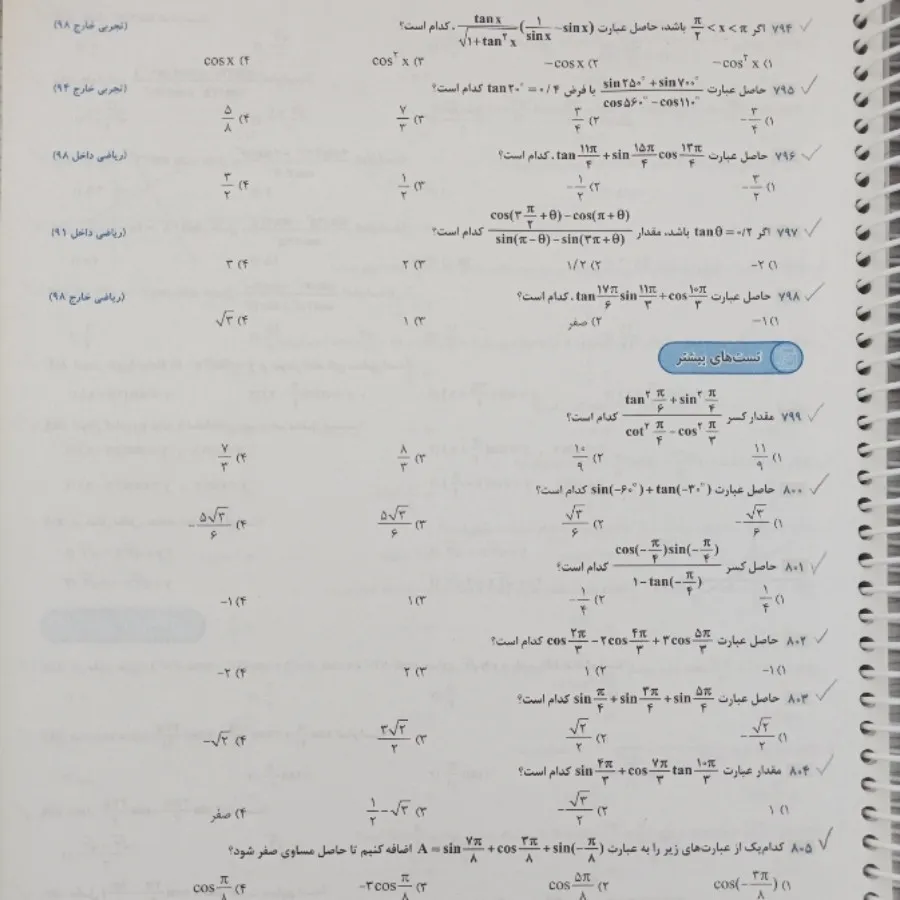 ۷۹۴ اگر π/۲ < x < π باشد، حاصل عبارت tan x/√(۱+tan۲ x) (۱/sin x − sin x)، کدام است؟ (تجربی خارج ۹۸)
۱) −cos۲ x ۲) −cos x ۳) cos۲ x ۴) cos x
۷۹۵ حاصل عبارت (sin ۲۵۰° + sin ۷۰۰°)/(cos ۵۶۰° − cos ۱۱۰°) با فرض tan ۲۰° = ۰/۴ کدام است؟ (تجربی خارج ۹۴)
۱) −۳/۴ ۲) ۳/۴ ۳) ۷/۳ ۴) ۵/۸
۷۹۶ حاصل عبارت tan ۱۱π/۴ + sin ۱۵π/۴ cos ۱۳π/۴، کدام است؟ (ریاضی داخل ۹۸)
۱) −۳/۲ ۲) −۱/۲ ۳) ۱/۲ ۴) ۳/۲
۷۹۷ اگر tan θ = ۰/۲ باشد، مقدار (cos(۳π/۲ + θ) − cos(π + θ))/(sin(π − θ) − sin(۳π + θ)) کدام است؟ (ریاضی داخل ۹۱)
۱) −۲ ۲) ۱/۲ ۳) ۲ ۴) ۳
۷۹۸ حاصل عبارت tan ۱۷π/۶ sin ۱۱π/۳ + cos ۱۰π/۳، کدام است؟ (ریاضی خارج ۹۸)
۱) −۱ ۲) صفر ۳) ۱ ۴) √۳
تست‌های بیشتر
۷۹۹ مقدار کسر (tan۲ π/۶ + sin۲ π/۴)/(cot۲ π/۴ − cos۲ π/۳) کدام است؟
۱) ۱۱/۹ ۲) ۱۰/۹ ۳) ۸/۳ ۴) ۷/۳
۸۰۰ حاصل عبارت sin(−۶۰°) + tan(−۳۰°) کدام است؟
۱) −√۳/۶ ۲) √۳/۶ ۳) ۵√۳/۶ ۴) −۵√۳/۶
۸۰۱ حاصل کسر (cos(−π/۴) sin(−π/۴))/(۱ − tan(−π/۴)) کدام است؟
۱) ۱/۴ ۲) −۱/۴ ۳) ۱ ۴) −۱
۸۰۲ حاصل عبارت cos ۲π/۳ − ۲cos ۴π/۳ + ۳cos ۵π/۳ کدام است؟
۱) −۱ ۲) ۱ ۳) ۲ ۴) −۲
۸۰۳ حاصل عبارت sin π/۴ + sin ۳π/۴ + sin ۵π/۴ کدام است؟
۱) −√۲/۲ ۲) √۲/۲ ۳) ۳√۲/۲ ۴) −√۲
۸۰۴ مقدار عبارت sin ۴π/۳ + cos ۷π/۳ tan ۱۰π/۳ کدام است؟
۱) ۱ ۲) −√۳/۲ ۳) √۳ − ۱/۲ ۴) صفر
۸۰۵ کدام‌یک از عبارت‌های زیر را به عبارت A = sin ۷π/۸ + cos ۳π/۸ + sin(−π/۸) اضافه کنیم تا حاصل مساوی صفر شود؟
۱) cos(−۳π/۸) ۲) cos ۵π/۸ ۳) −۳cos π/۸ ۴) cos π/۸